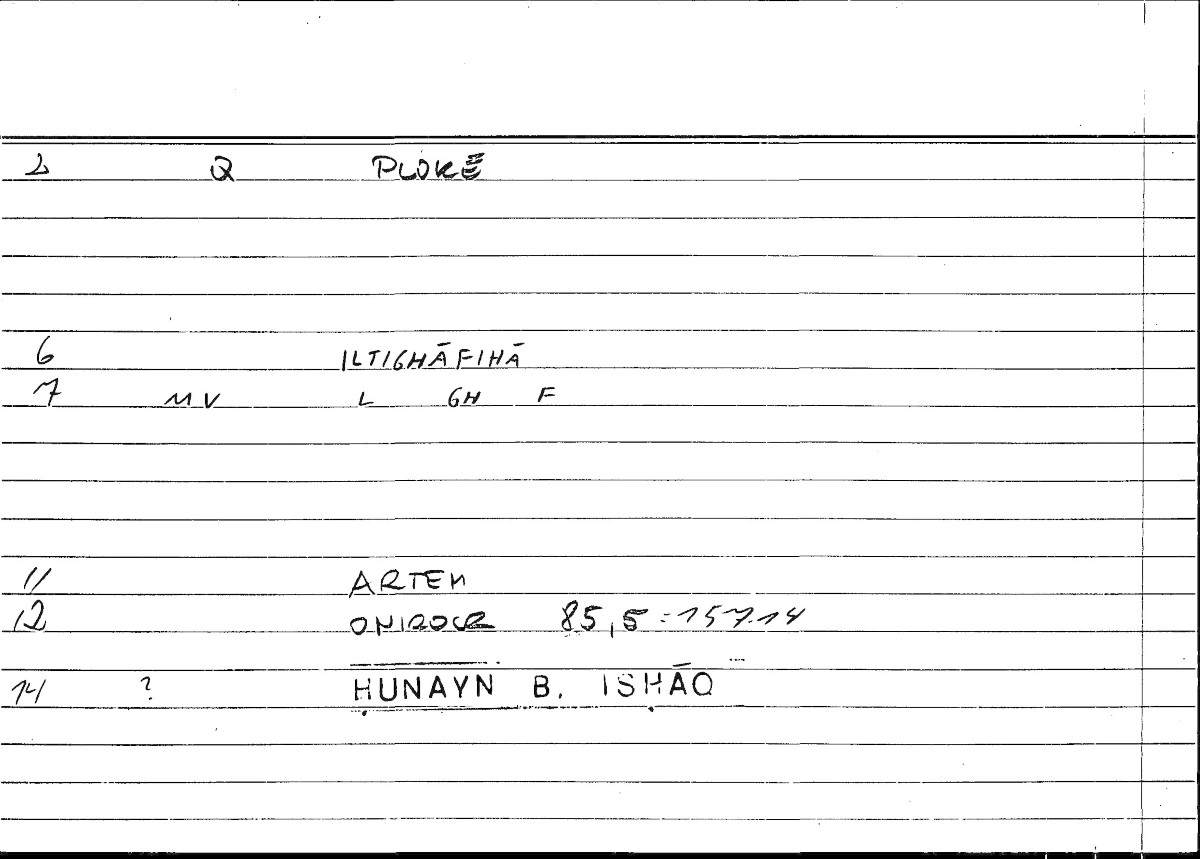 2 Q PLOKĒ
6 ILTIGHĀFIHĀ
7 MV L GH F
11 ARTEM
12 ONIROCR 85,5:157.14
14 ? ḤUNAYN B. ISḤĀQ